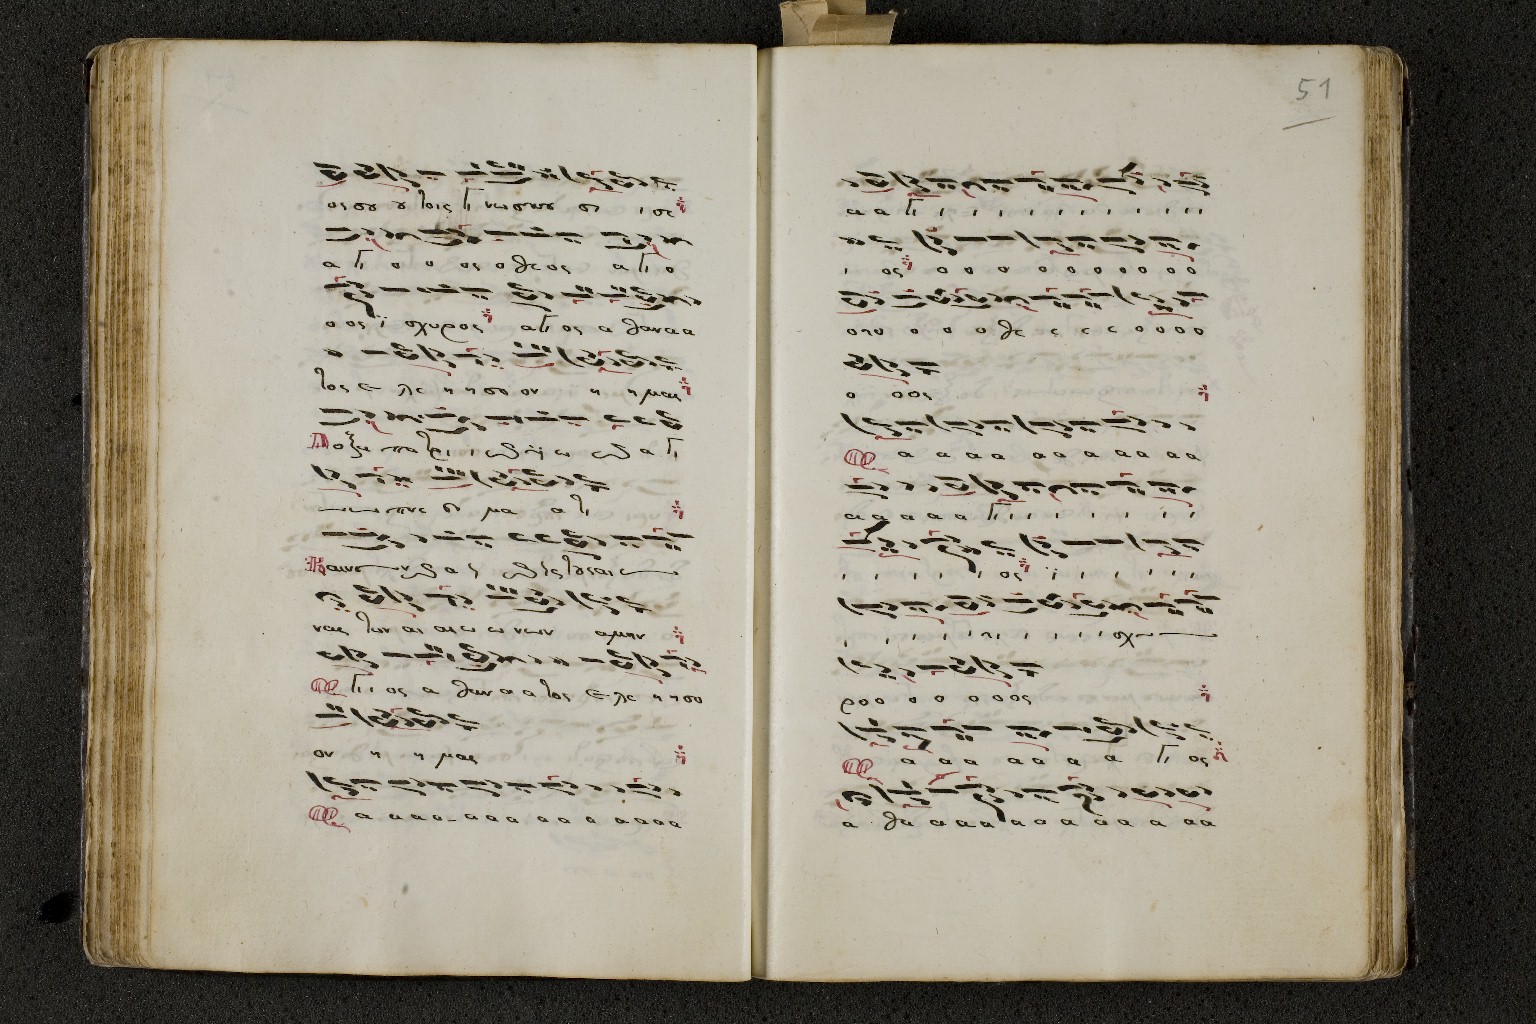 ος σου τοις γι νωσκου σι ι σε
α γι ο ο ος ο θε ος α γι ο
ο ος ι σχυρος α γι ος α θανα α
τος ε λε η η σο ον η η μας
Δοξα πα τρι ι και α γι
ω πνε ευ μα α τι
Και νυν και α ει και εις τους αι ω
νας των αι αι ω ω νων αμην
Α γι ι ος α θανα α τος ε λε η η σο
ον η η μας
Α α α α α α α α α α α α α α α
51
α α γι ι ι ι ι ι ι ι ι ι ι ι
ι ος ο ο ο ο ο ο ο ο ο ο
ο ο ο ο ο θε ε ε ε ο ο ο ο
ο οος
Α α α α α α α α α α α α
α α α α α γι ι ι ι ι ι ι ι
ι ι ι ι ι ος ι ι ι ι ι ι
ι ι ι ι ι ι ι ι ι ι σχυ
ροο ο ο ο οος
Α α α α α α α α γι ος
α θα α α α α α α α α α α α